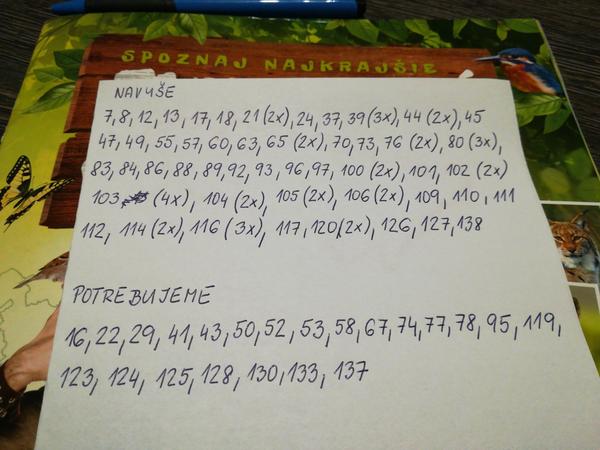 SPOZNAJ NAJKRAJŠIE
NAVYŠE
7, 8, 12, 13, 17, 18, 21 (2x), 24, 37, 39 (3x), 44 (2x), 45
47, 49, 55, 57, 60, 63, 65 (2x), 70, 73, 76 (2x), 80 (3x),
83, 84, 86, 88, 89, 92, 93, 96, 97, 100 (2x), 101, 102 (2x)
103 (4x), 104 (2x), 105 (2x), 106 (2x), 109, 110, 111
112, 114 (2x), 116 (3x), 117, 120 (2x), 126, 127, 138
POTREBUJEME
16, 22, 29, 41, 43, 50, 52, 53, 58, 67, 74, 77, 78, 95, 119,
123, 124, 125, 128, 130, 133, 137